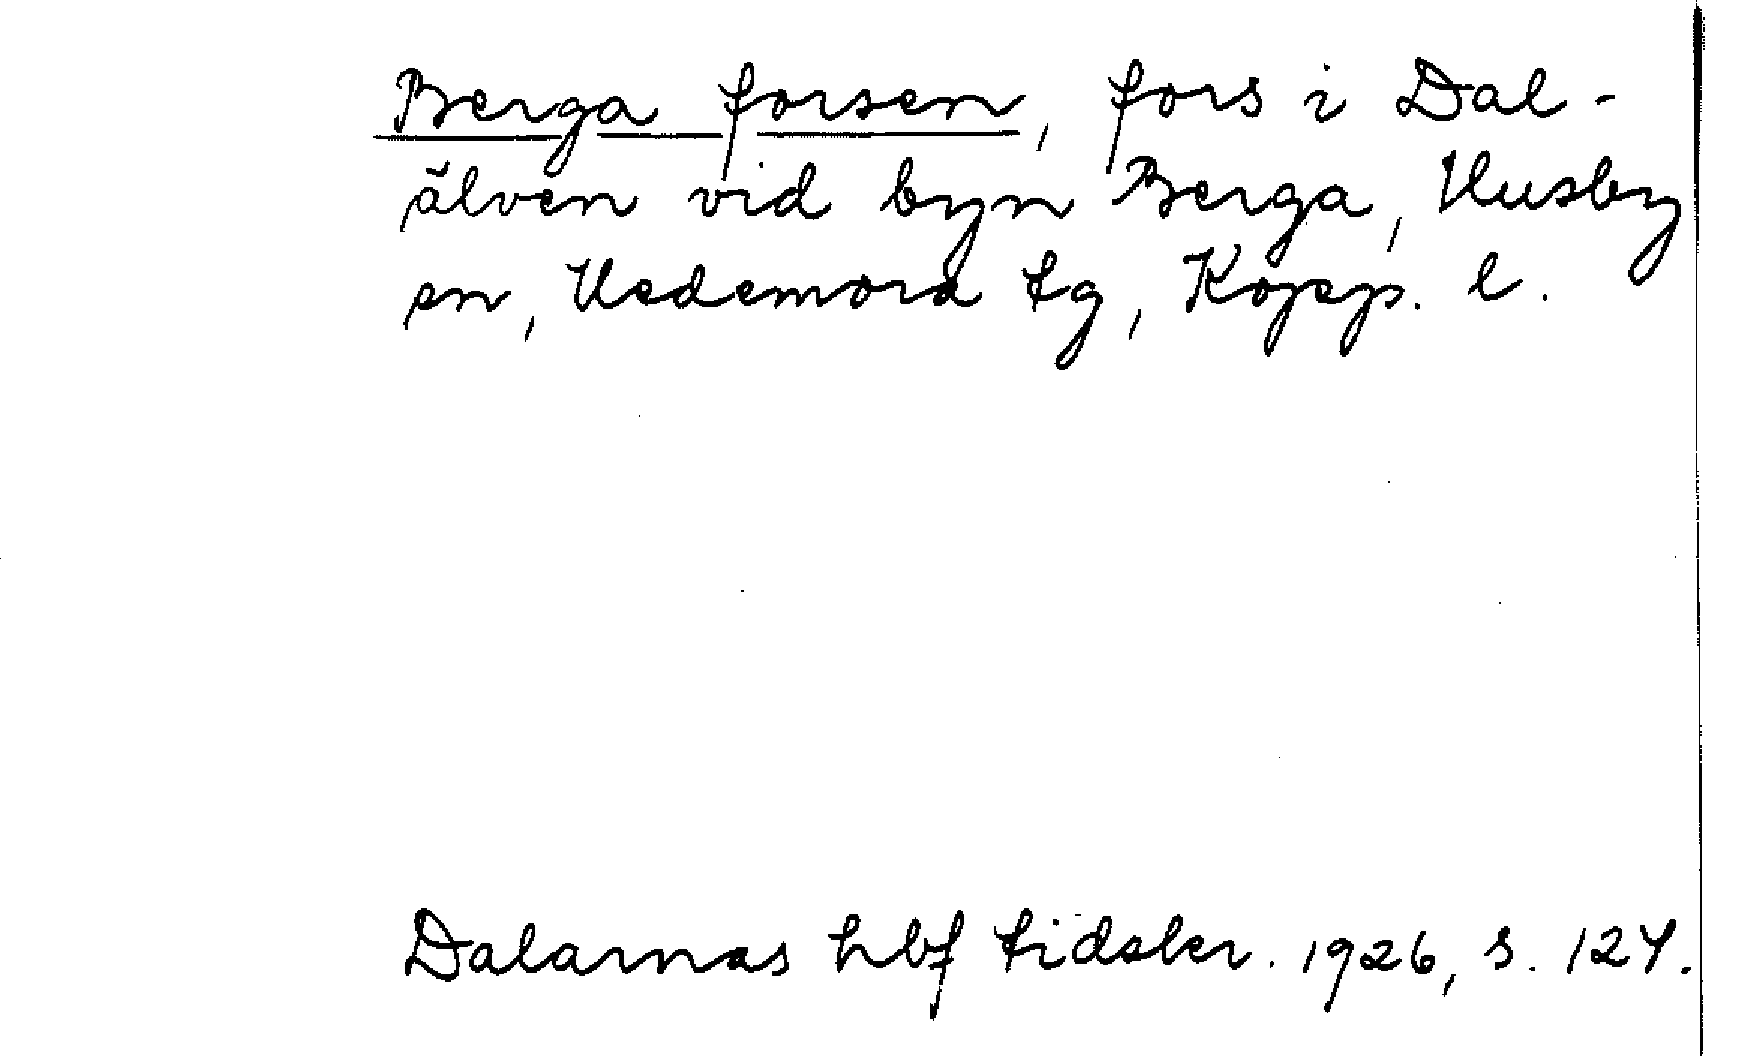 Berga forsen, fors i Dal-
älven vid byn Berga, Husby
sn, Hedemora tg, Kopp. l.
Dalarnas hbf tidskr. 1926, s. 127.